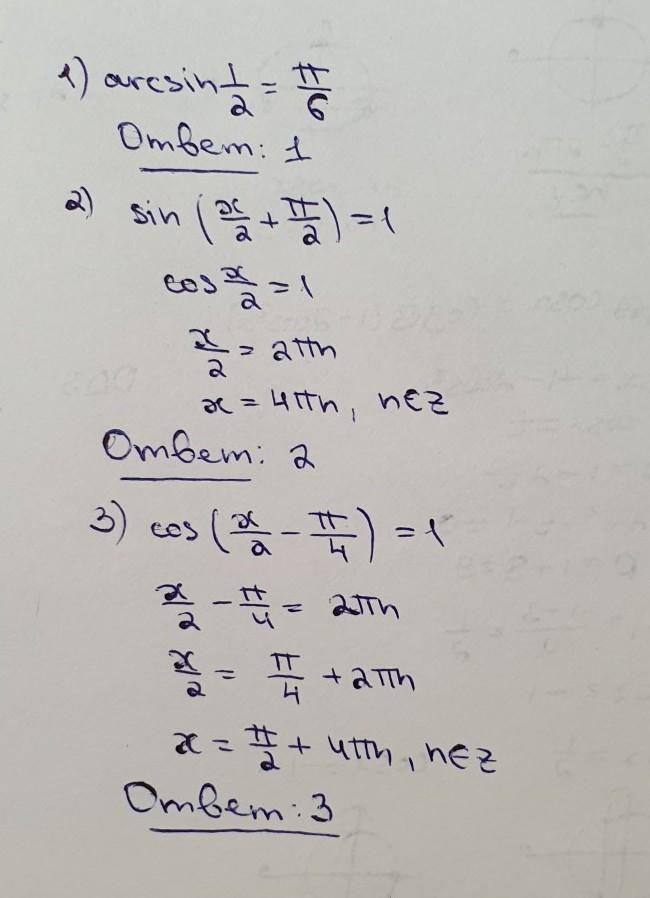 1) arcsin 1/2 = π/6
Ответ: 1
2) sin (x/2 + π/2) = 1
cos x/2 = 1
x/2 = 2πn
x = 4πn, n∈z
Ответ: 2
3) cos (x/2 − π/4) = 1
x/2 − π/4 = 2πn
x/2 = π/4 + 2πn
x = π/2 + 4πn, n∈z
Ответ: 3